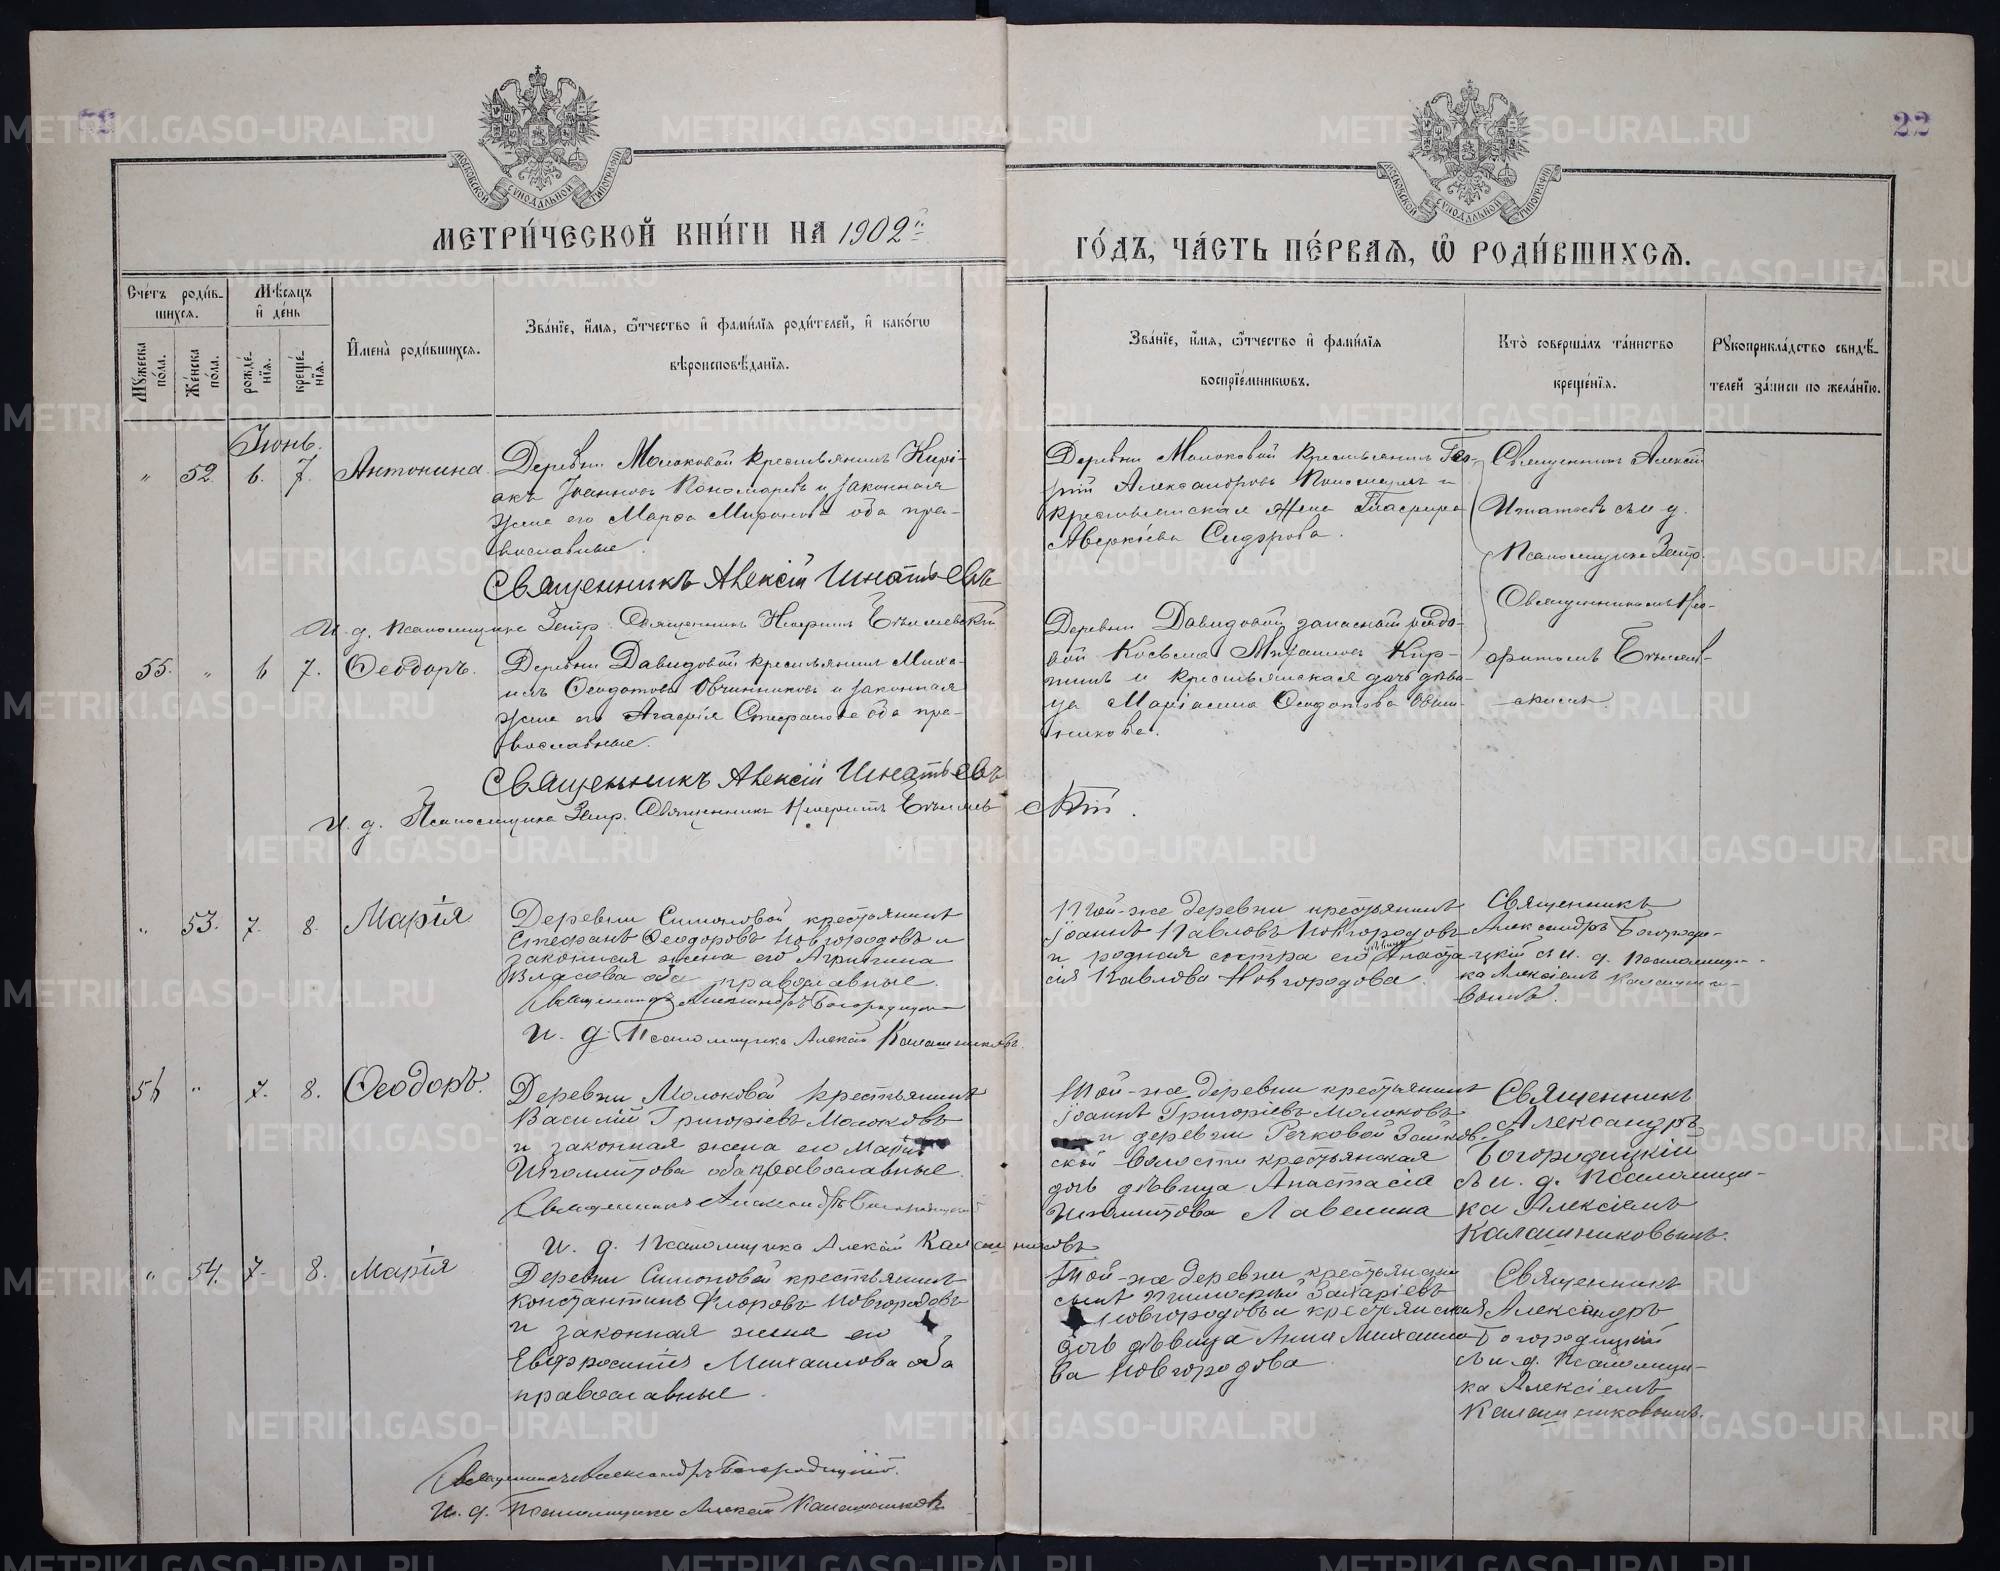 22
МОСКОВСКОЙ СѴНОДАЛЬНОЙ ТИПОГРАФІИ
МОСКОВСКОЙ СѴНОДАЛЬНОЙ ТИПОГРАФІИ
МЕТРИ́ЧЕСКОЙ КНИ́ГИ НА 1902й
ГО́ДЪ, ЧА́СТЬ ПЕ́РВАЯ, Ѡ҆ РОДИ́ВШИХСЯ.
Сче́тъ роди́в-
шихся.
Мꙋжеска по́ла.
Же́нска по́ла.
Мѣ́сяцъ
и҆ де́нь
рожде́-
нїя.
креще́-
нїя.
И҆мена̀ роди́вшихся.
Зва́нїе, и҆́мя, ѻ҆́тчество и҆ фами́лїя роди́телей, и҆ како́гѡ
вѣроисповѣ́данїя.
Зва́нїе, и҆́мя, ѻ҆́тчество и҆ фами́лїя
воспрїе́мникѡвъ.
Кто̀ соверша́лъ та́инство
креще́нїя.
Рꙋкоприкла́дство свидѣ́-
телей за́писи по жела́нїю.
Іюнь.
" 52. 6. 7. Антонина.
Деревни Молоковой крестьянинъ Кирі-
акъ Іоанновъ Пономаревъ и законная
жена его Марѳа Миронова оба пра-
вославные.
Священникъ Алексій Игнатьевъ
И. д. псаломщика Заштр. Священникъ
Деревни Молоковой крестьянинъ Геор-
гій Александровъ и
крестьянская жена Гласфира
Аверкіева Сидорова.
Священникъ Алексій
Игнатьевъ съ и. д.
Псаломщика Заштр.
Священникомъ
55. " 6 7. Ѳеодоръ.
Деревни Давидовой крестьянинъ Миха-
илъ Ѳеодотовъ Овчинниковъ и законная
жена его Агафія Стефанова оба пра-
вославные.
Священникъ Алексій Игнатьевъ
И. д. Псаломщика Заштр. Священникъ
скій.
Деревни Давидовой запасный рядо-
вой Косьма Михаиловъ Кир-
и крестьянская дочь дѣви-
ца Маріамна Ѳеодотова Овчин-
никова.
" 53. 7. 8. Марія
Деревни Симоновой крестьянинъ
Стефанъ Ѳеодоровъ Новгородовъ и
законная жена его Агрипина
Власова оба православные.
Священникъ Александръ Богородицкій
И. д. Псаломщика Алексій Калашниковъ.
Той-же деревни крестьянинъ
Іоаннъ Павловъ Новгородовъ
и родная сестра его дѣвица Анаста-
сія Павлова Новгородова.
Священникъ
Александръ Богороди-
цкій съ и. д. Псаломщи-
ка Алексіемъ Калашнико-
вымъ.
56 " 7. 8. Ѳеодоръ.
Деревни Молоковой крестьянинъ
Василій Григоріевъ Молоковъ
и законная жена его Марія
Ипполитова оба православные.
Священникъ Александръ Богородицкій
И. д. Псаломщика Алексій Калашниковъ.
Той-же деревни крестьянинъ
Іоаннъ Григоріевъ Молоковъ
и деревни Речковой Зайков-
ской волости крестьянская
дочь дѣвица Анастасія
Ипполитова Лавелина
Священникъ
Александръ
Богородицкій
съ и. д. Псаломщи-
ка Алексіемъ
Калашниковымъ.
" 54. 7. 8. Марія
Деревни Симоновой крестьянинъ
Константинъ Флоровъ Новгородовъ
и законная жена его
Евфросинія Михаилова оба
православные.
Священникъ Александръ Богородицкій.
И. д. Псаломщика Алексій Калашниковъ
Той-же деревни крестьянскій
сынъ Захаріевъ
Новгородовъ и крестьянская
дочь дѣвица Анна Михаило-
ва Новгородова
Священникъ
Александръ
Богородицкій
съ и. д. Псаломщи-
ка Алексіемъ
Калашниковымъ.
METRIKI.GASO-URAL.RU